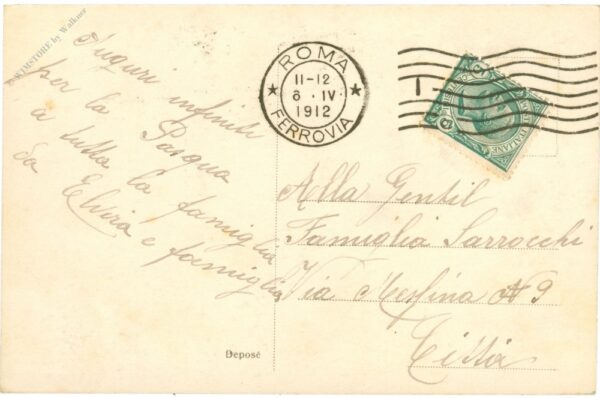 Auguri infiniti
per la Pasqua
a tutta la famiglia
da Elvira e famiglia
ROMA
11-12
8 · IV
1912
FERROVIA
Alla Gentil
Famiglia Sarrocchi
Via Messina N 9
Città
Deposé
SWIMSTORE by Walkner